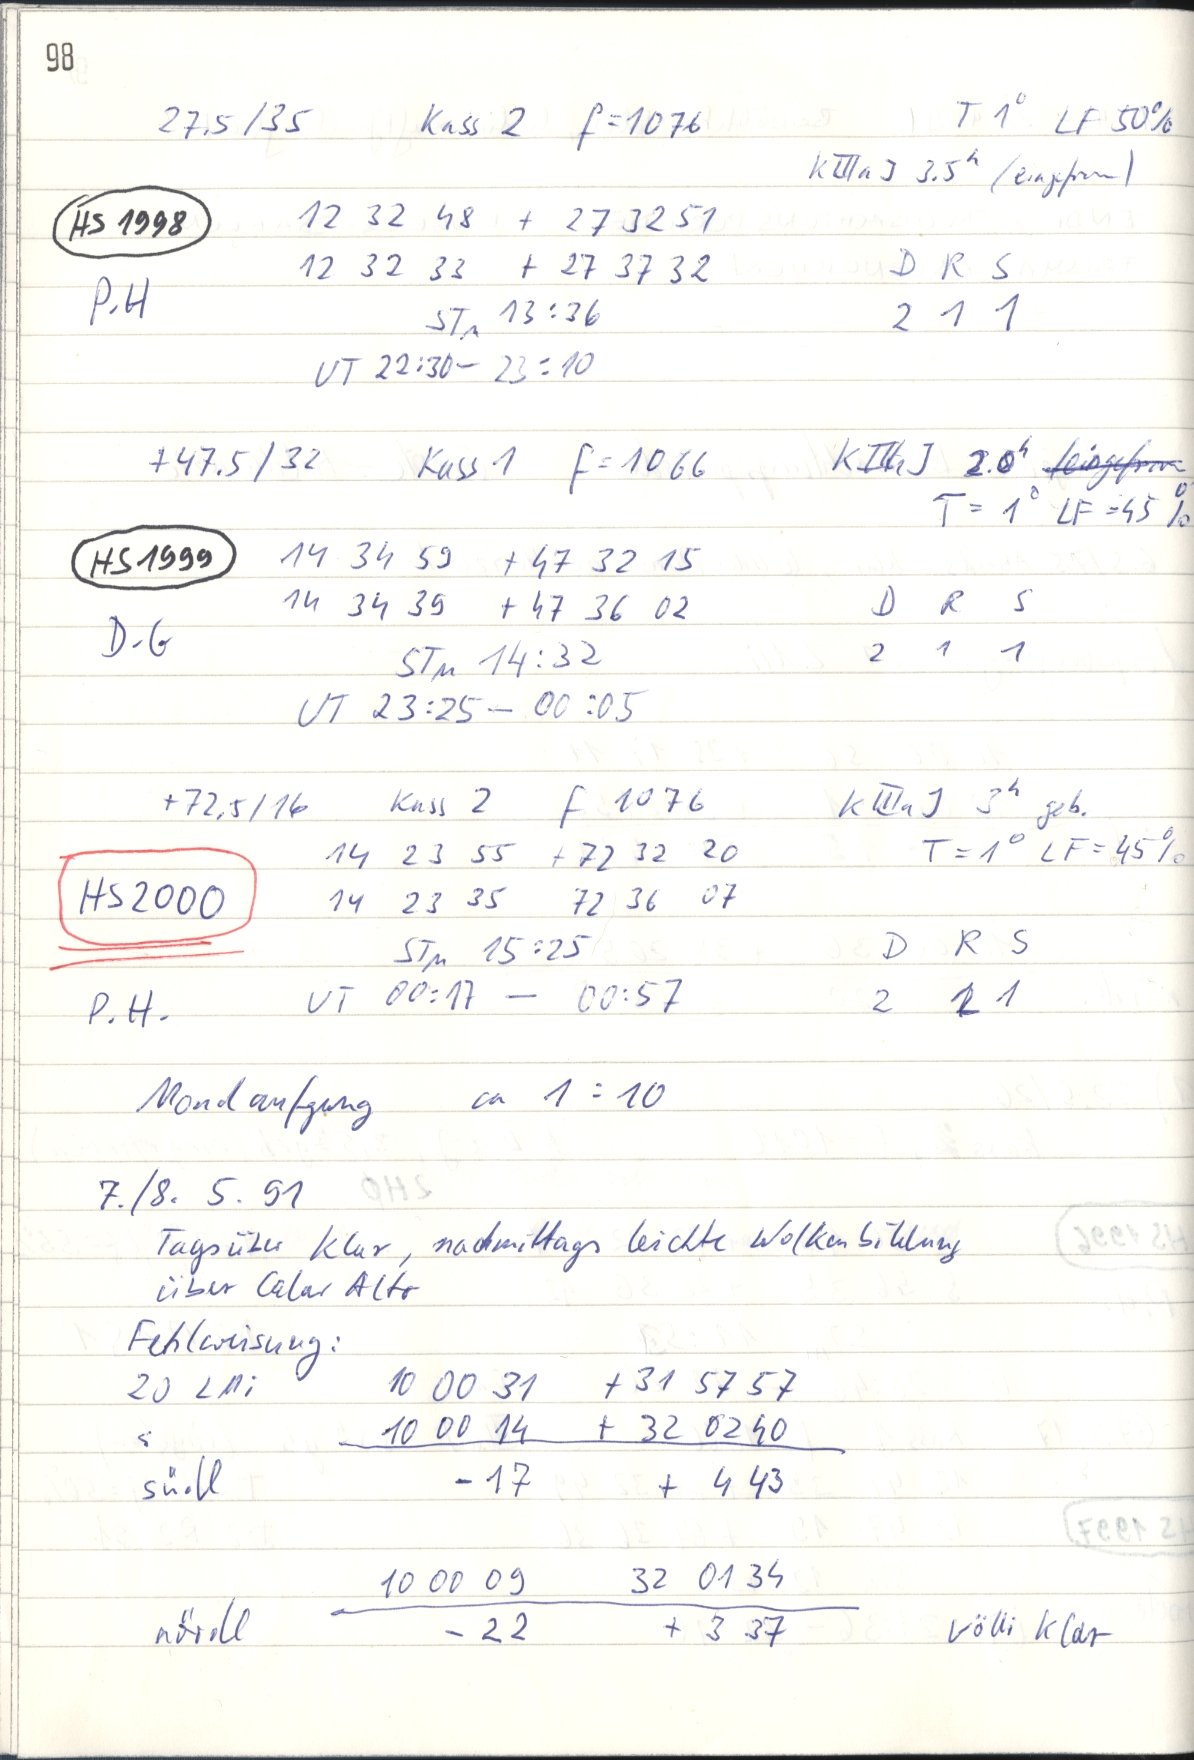 98
27.5/35 Kass 2 f=1076 T 1° LF 50%
KIIIaJ 3.5h
HS 1998 12 32 48 + 27 32 51
12 32 33 + 27 37 32 D R S
P.H STm 13:36 2 1 1
UT 22:30 – 23:10
+47.5/32 Kass 1 f=1066 KIIIaJ 2.0h
T = 1° LF = 45%
HS 1999 14 34 59 +47 32 15
14 34 39 +47 36 02 D R S
D.G STm 14:32 2 1 1
UT 23:25 – 00:05
+72,5/16 Kass 2 f 1076 KIIIaJ 3h geb.
14 23 55 +72 32 20 T = 1° LF = 45%
HS 2000 14 23 35 72 36 07
STm 15:25 D R S
P.H. UT 00:17 – 00:57 2 1 1
Mondaufgang ca 1:10
7./8. 5. 91
Tagsüber klar, nachmittags leichte Wolkenbildung
über Calar Alto
Fehlweisung:
20 LMi 10 00 31 +31 57 57
10 00 14 + 32 02 40
südl -17 + 4 43
10 00 09 32 01 34
nördl -22 + 3 37 völli klar